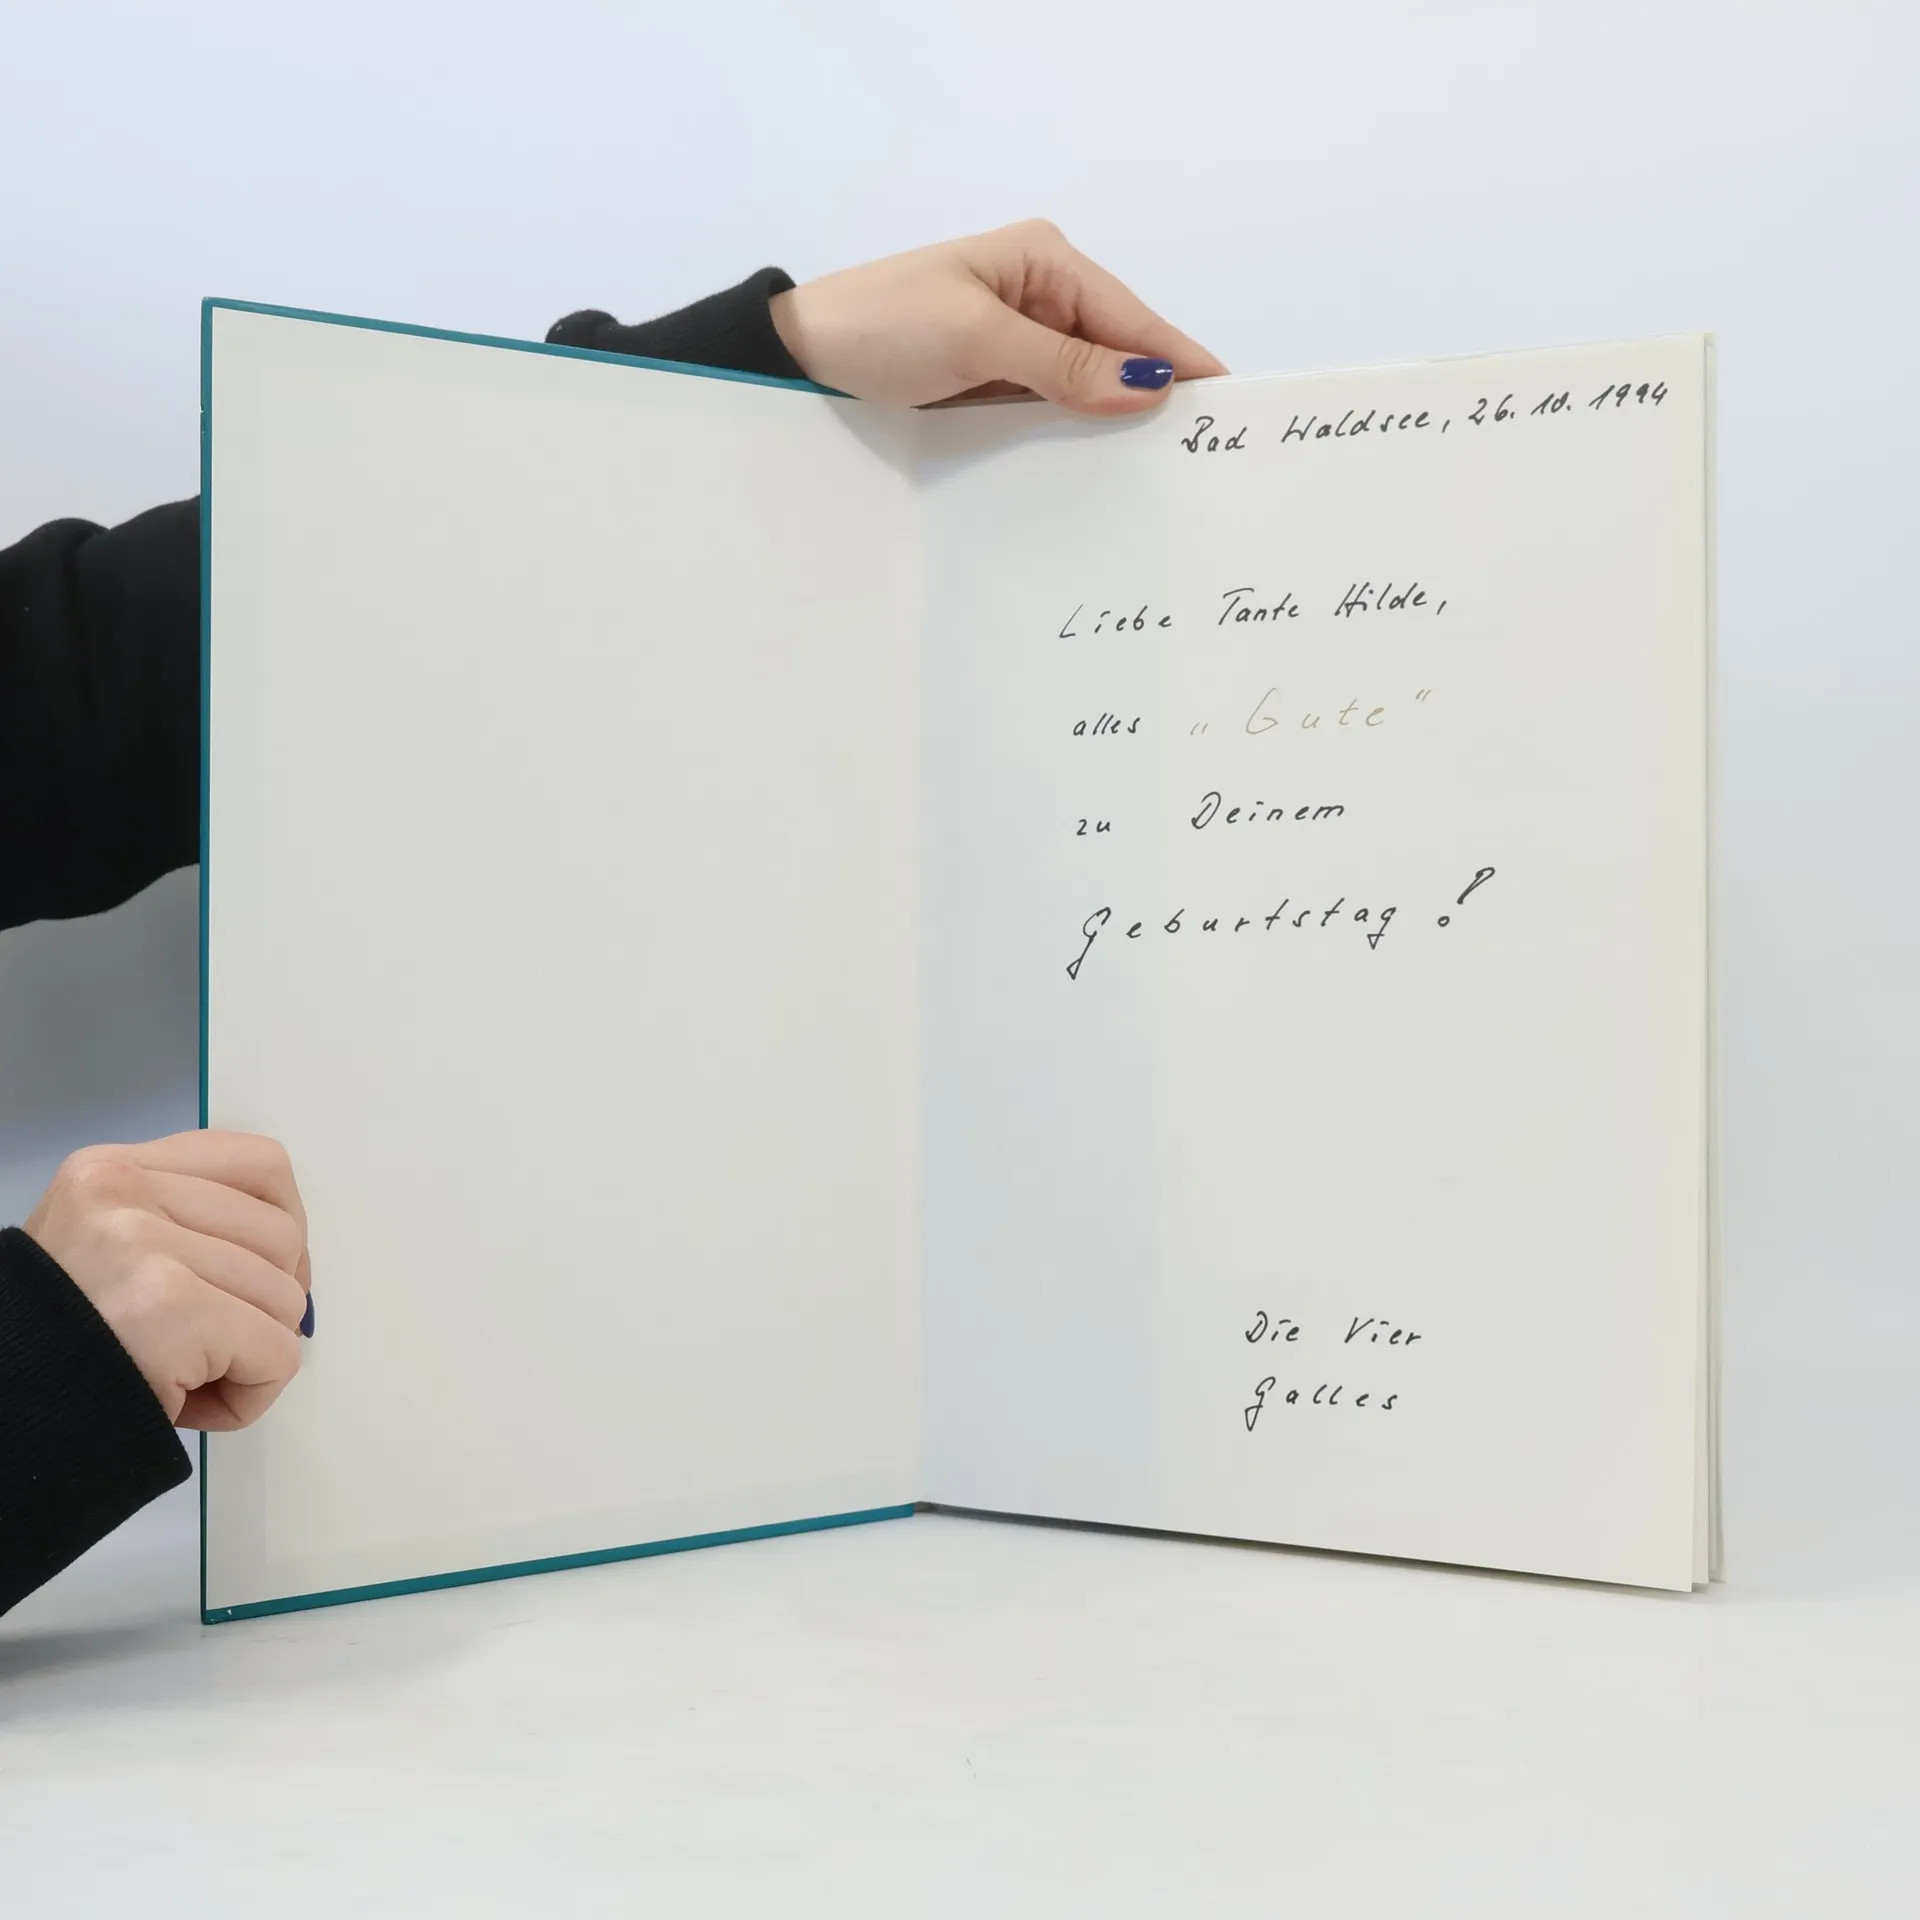 Bad Waldsee, 26. 10. 1994
Liebe Tante Hilde,
alles „Gute“
zu Deinem
Geburtstag!
Die Vier
Galles